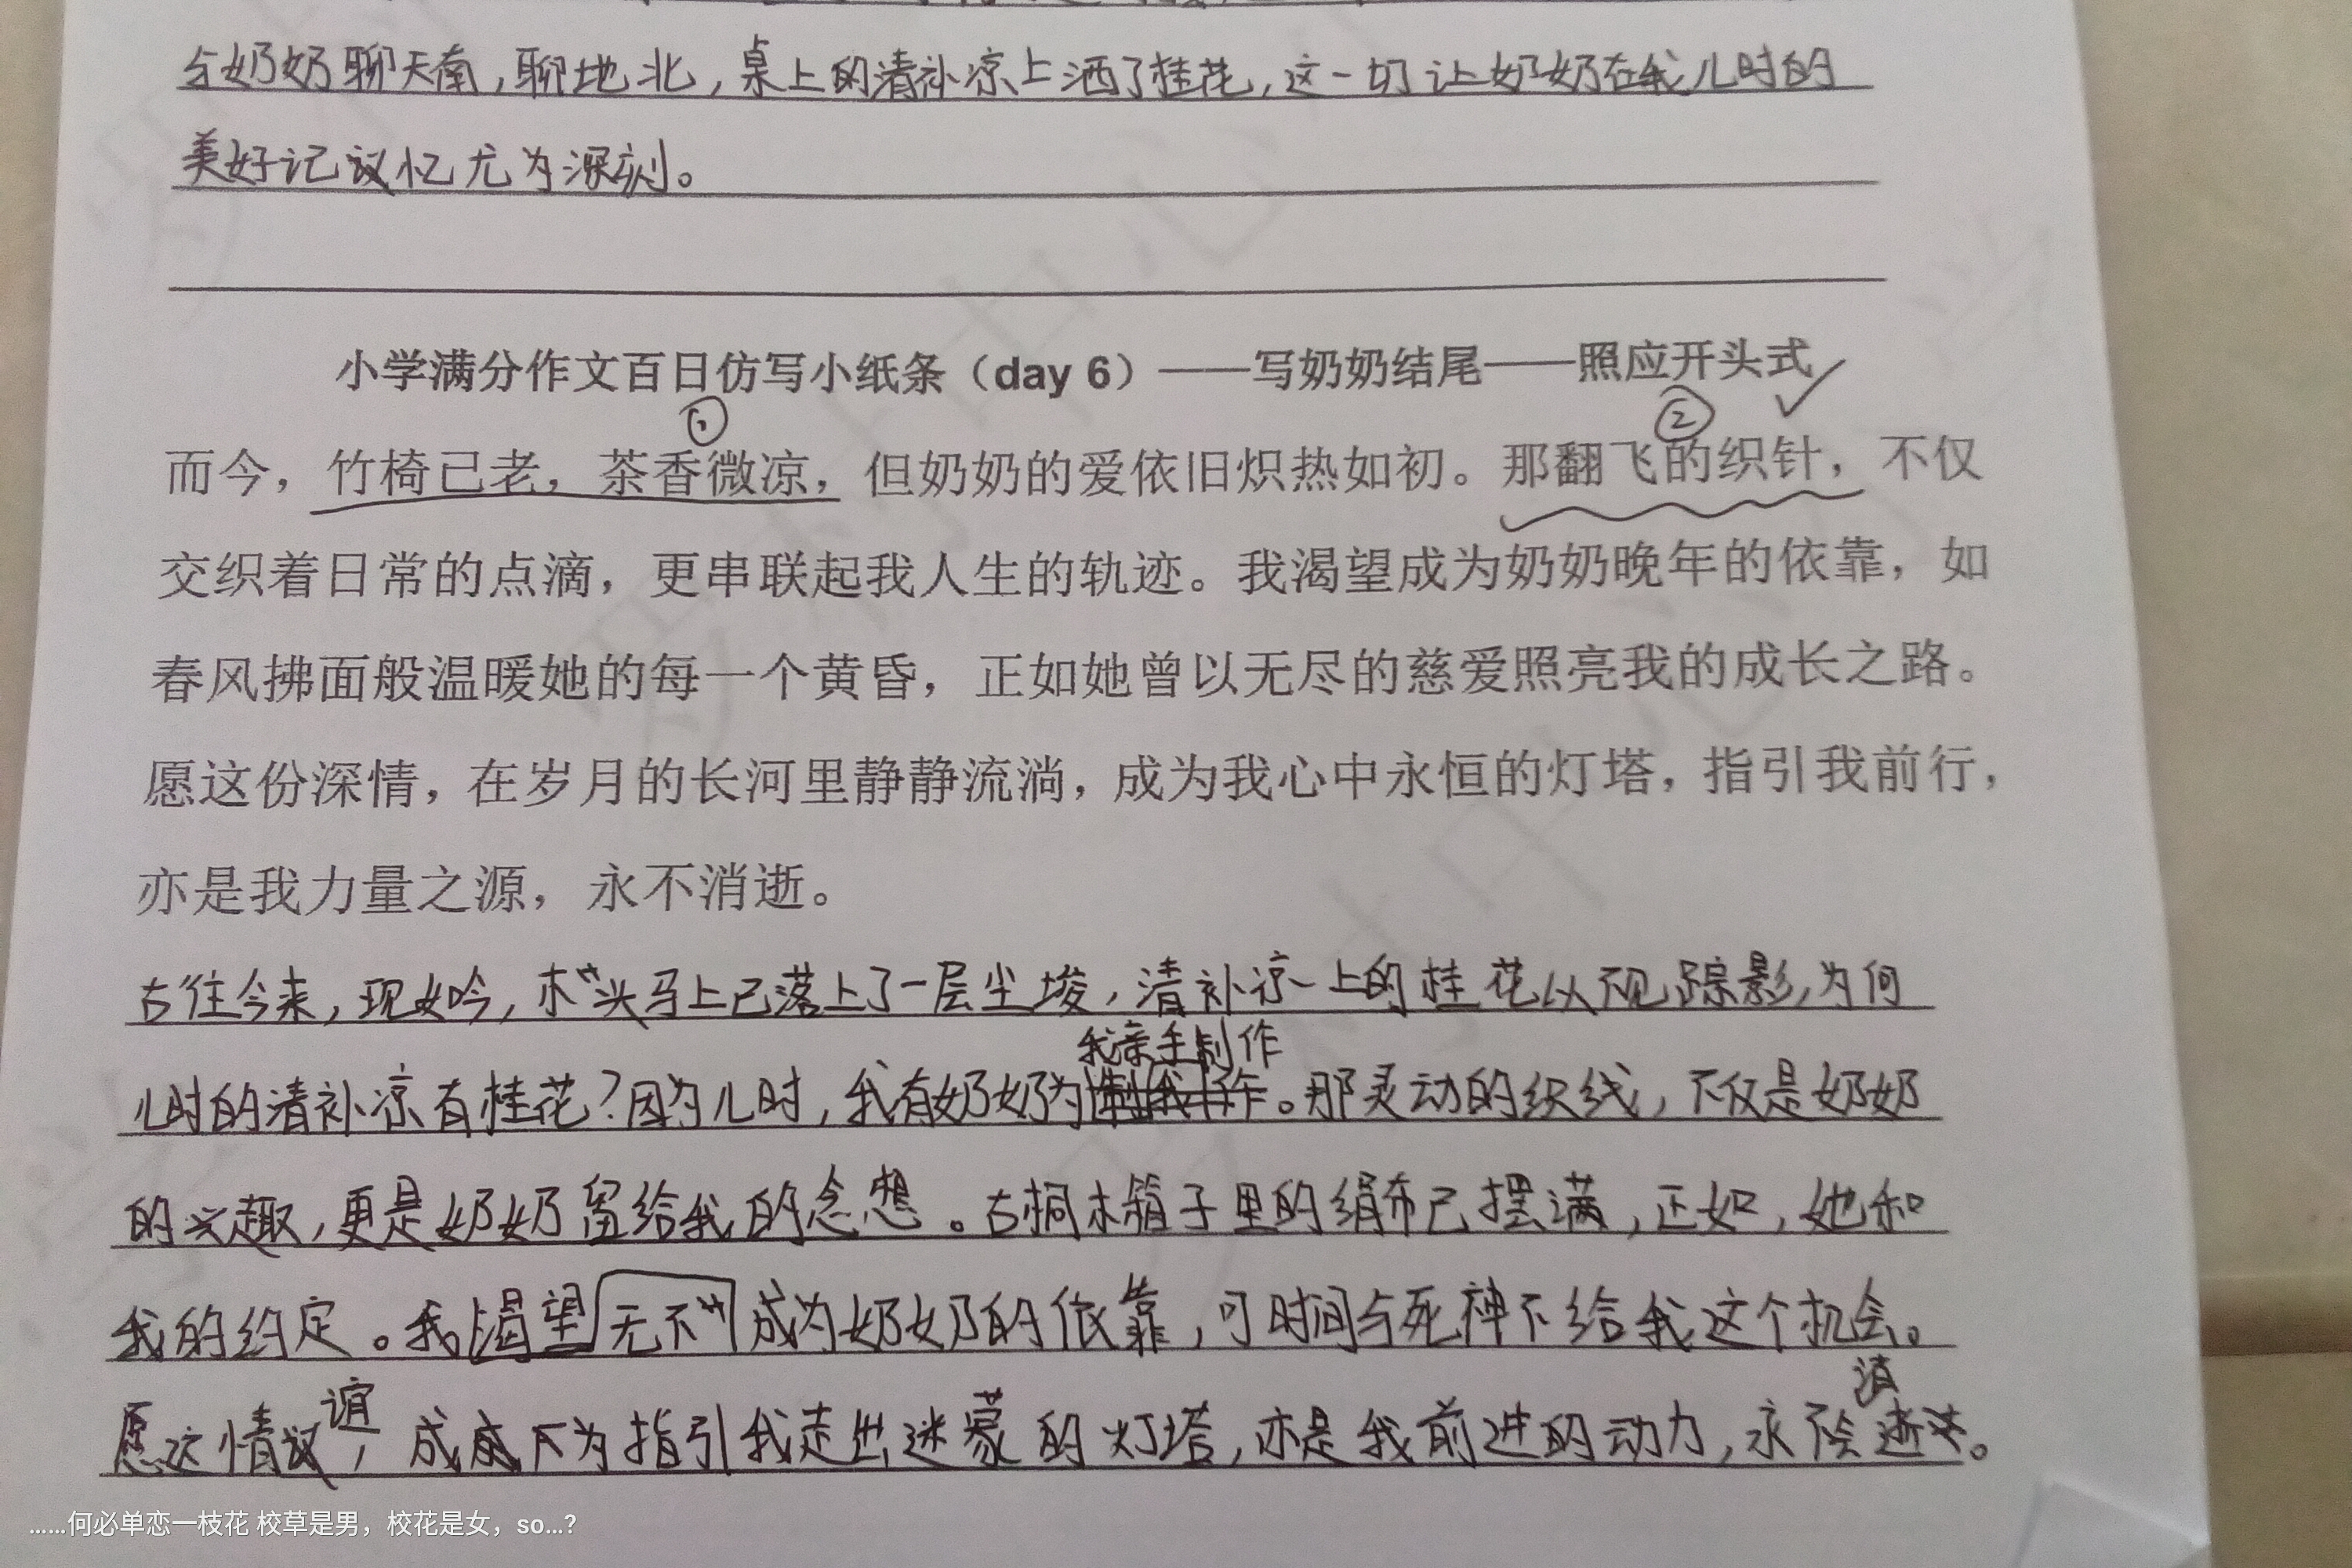 与奶奶聊天南，聊地北，桌上的清补凉上洒了桂花，这一切让奶奶在我儿时的
美好记忆尤为深刻。
小学满分作文百日仿写小纸条（day 6）——写奶奶结尾——照应开头式
① ②
而今，竹椅已老，茶香微凉，但奶奶的爱依旧炽热如初。那翻飞的织针，不仅
交织着日常的点滴，更串联起我人生的轨迹。我渴望成为奶奶晚年的依靠，如
春风拂面般温暖她的每一个黄昏，正如她曾以无尽的慈爱照亮我的成长之路。
愿这份深情，在岁月的长河里静静流淌，成为我心中永恒的灯塔，指引我前行，
亦是我力量之源，永不消逝。
古往今来，现如吟，木头马上已落上了一层尘埃，清补凉上的桂花以不见踪影，为何
我亲手制作
儿时的清补凉有桂花？因为儿时，我有奶奶为。那灵动的织线，不仅是奶奶
的兴趣，更是奶奶留给我的念想。古桐木箱子里的绢布已摆满，正如，她和
我的约定。我渴望无不成为奶奶的依靠，可时间与死神不给我这个机会。
愿这情谊，成为指引我走出迷蒙的灯塔，亦是我前进的动力，永不会消逝。
……何必单恋一枝花 校草是男，校花是女，so…?